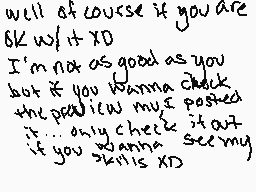 well of course if you are
OK w/ it XD
I'm not as good as you
but if you wanna check
the preview mv I posted
it... only check it out
if you wanna see my
skills XD